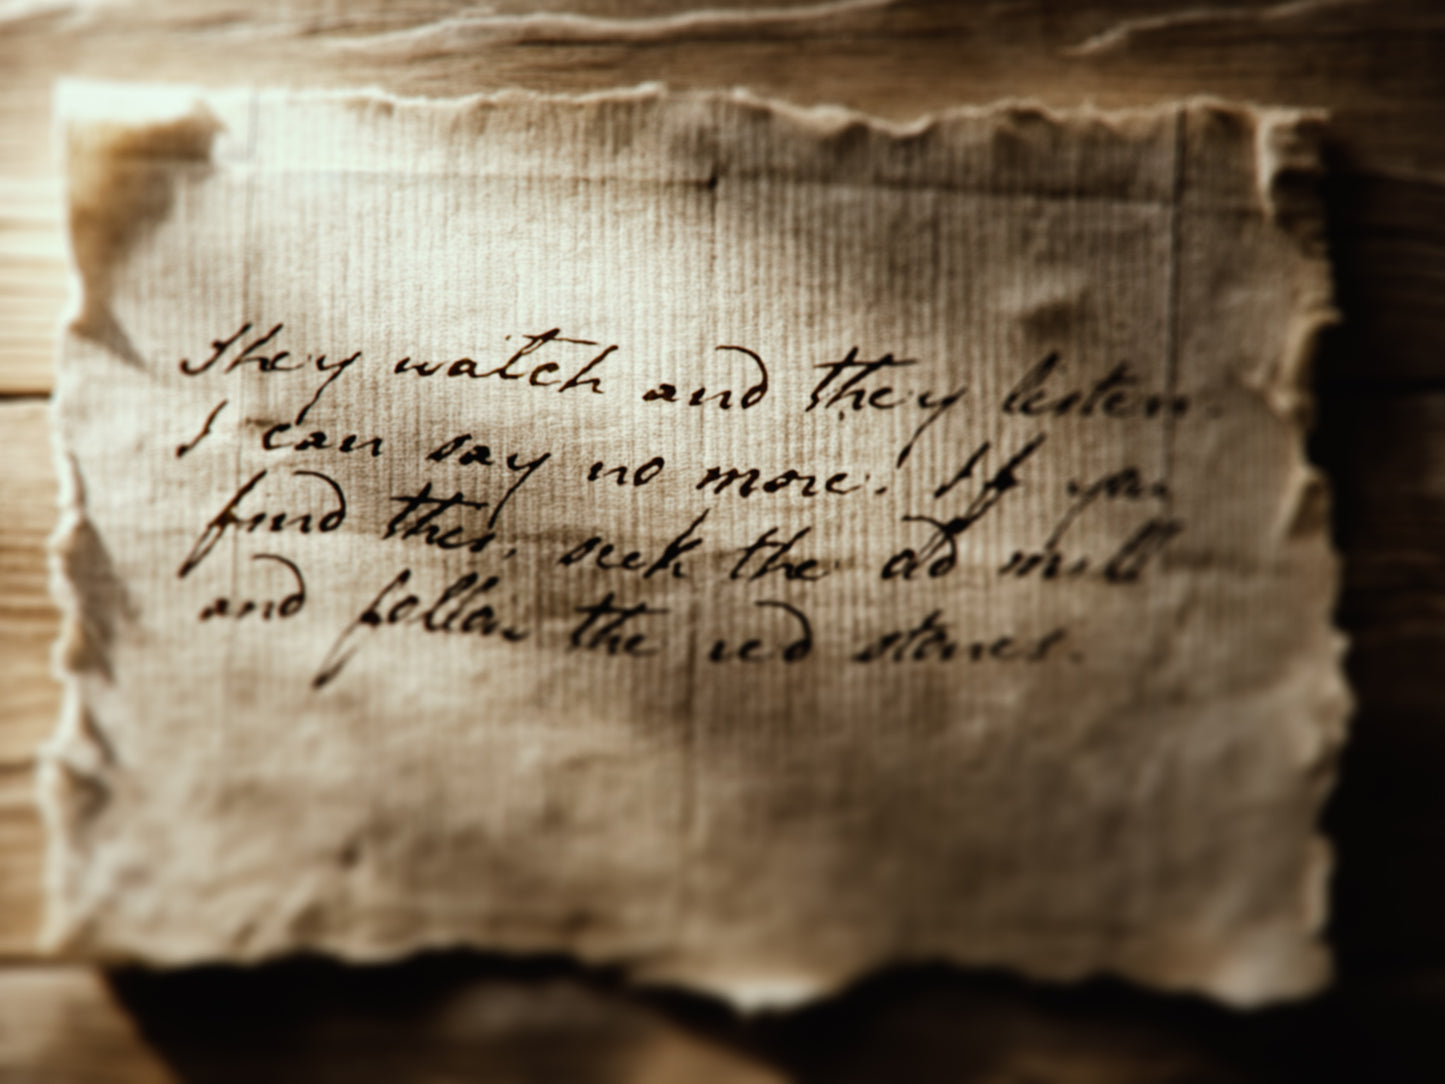 They watch and they listen.
I can say no more. If you
find this, seek the old mill
and follow the red stones.